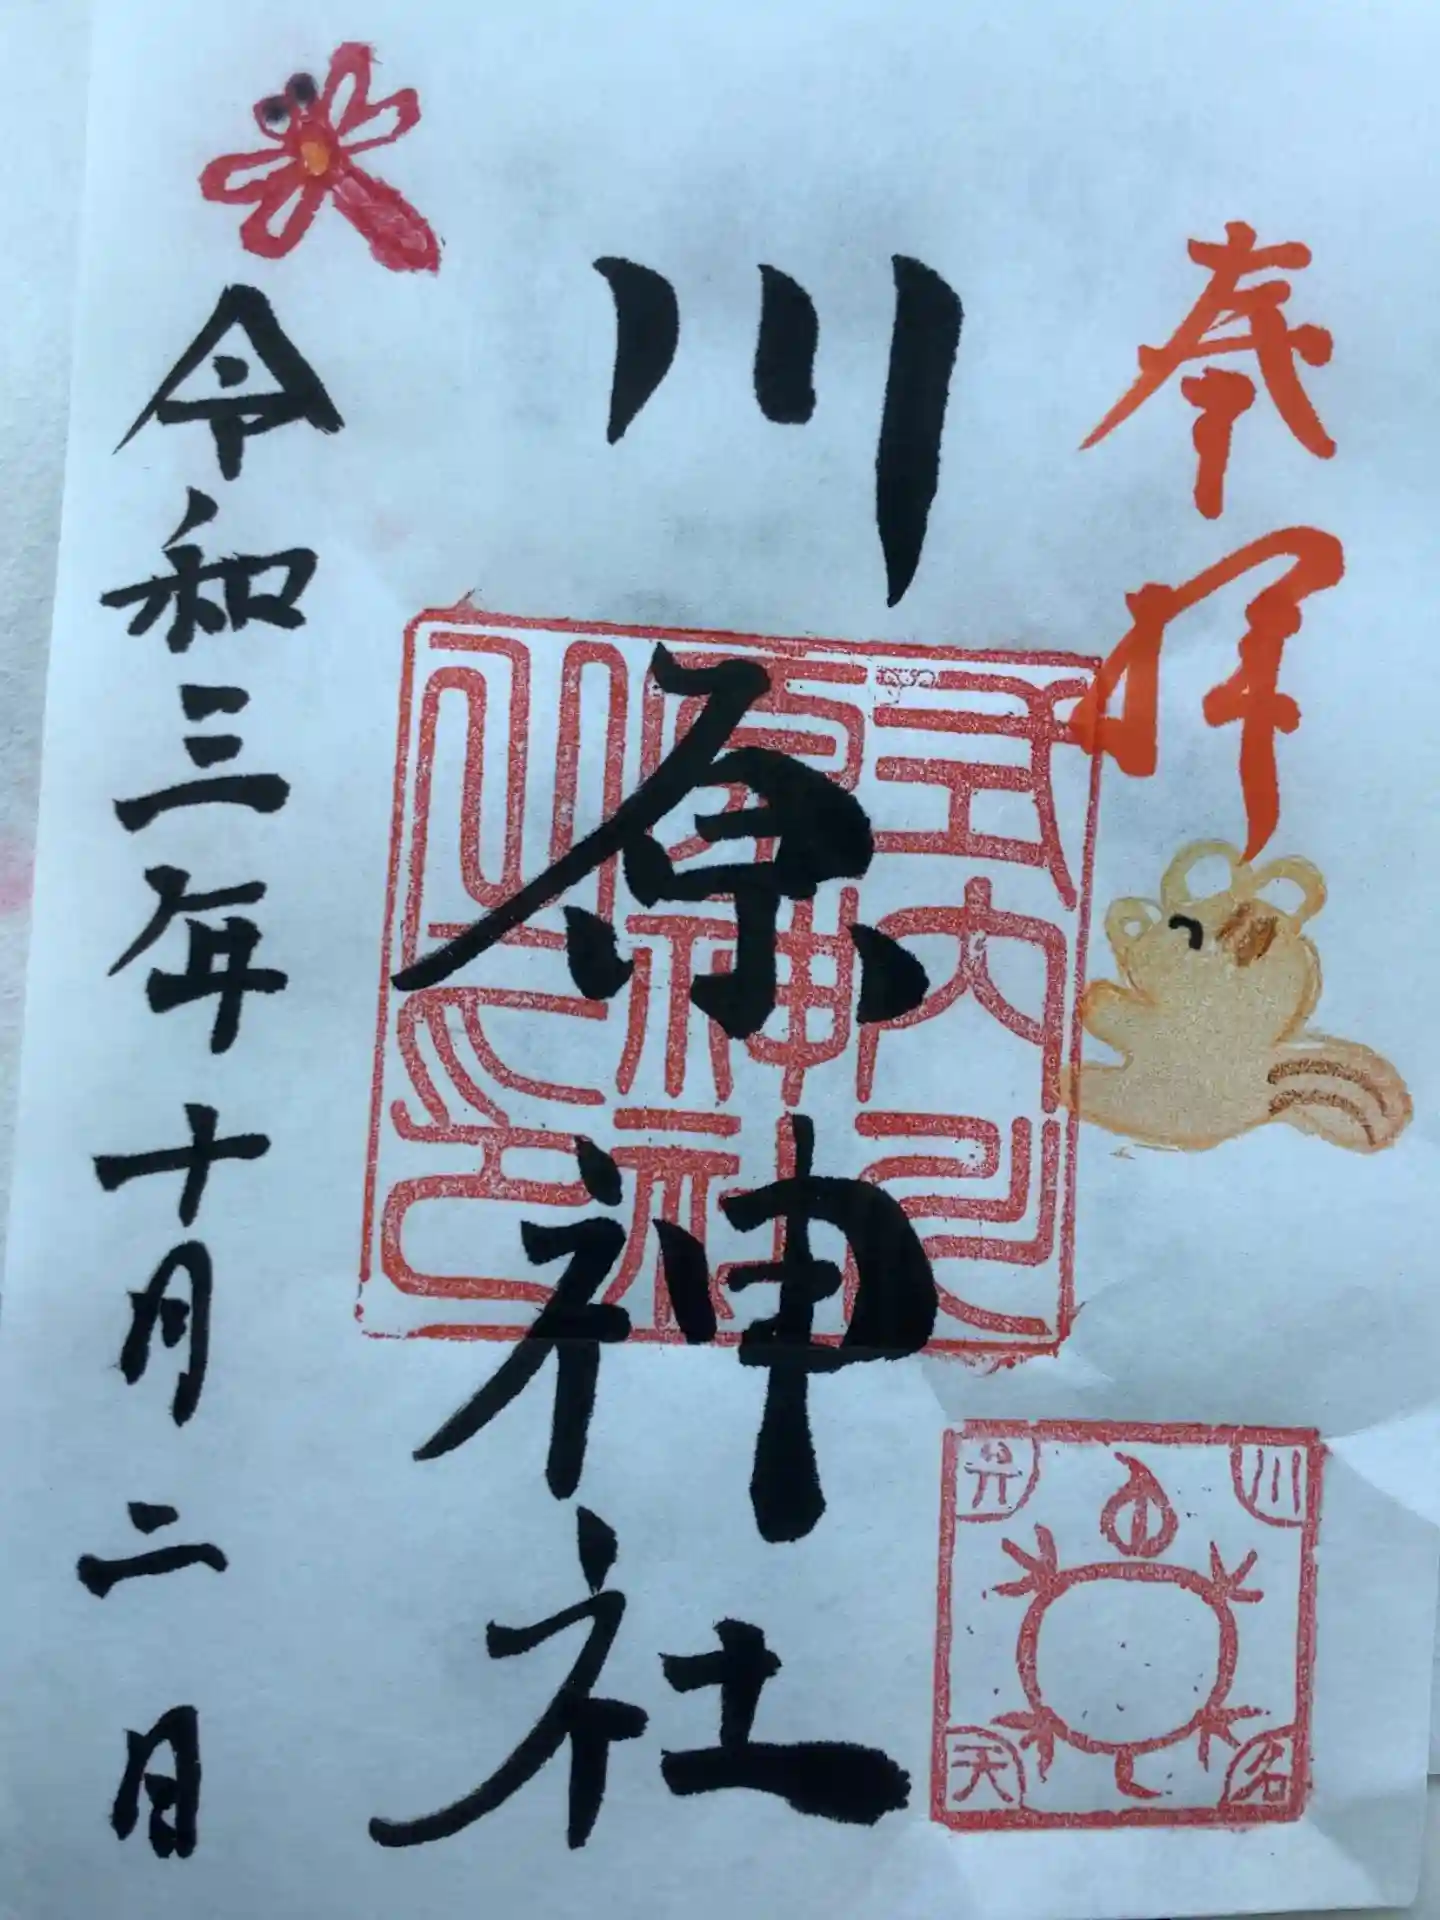 奉拝
川原神社
令和三年十月二日
式内
川原神社
之印
川名
弁天